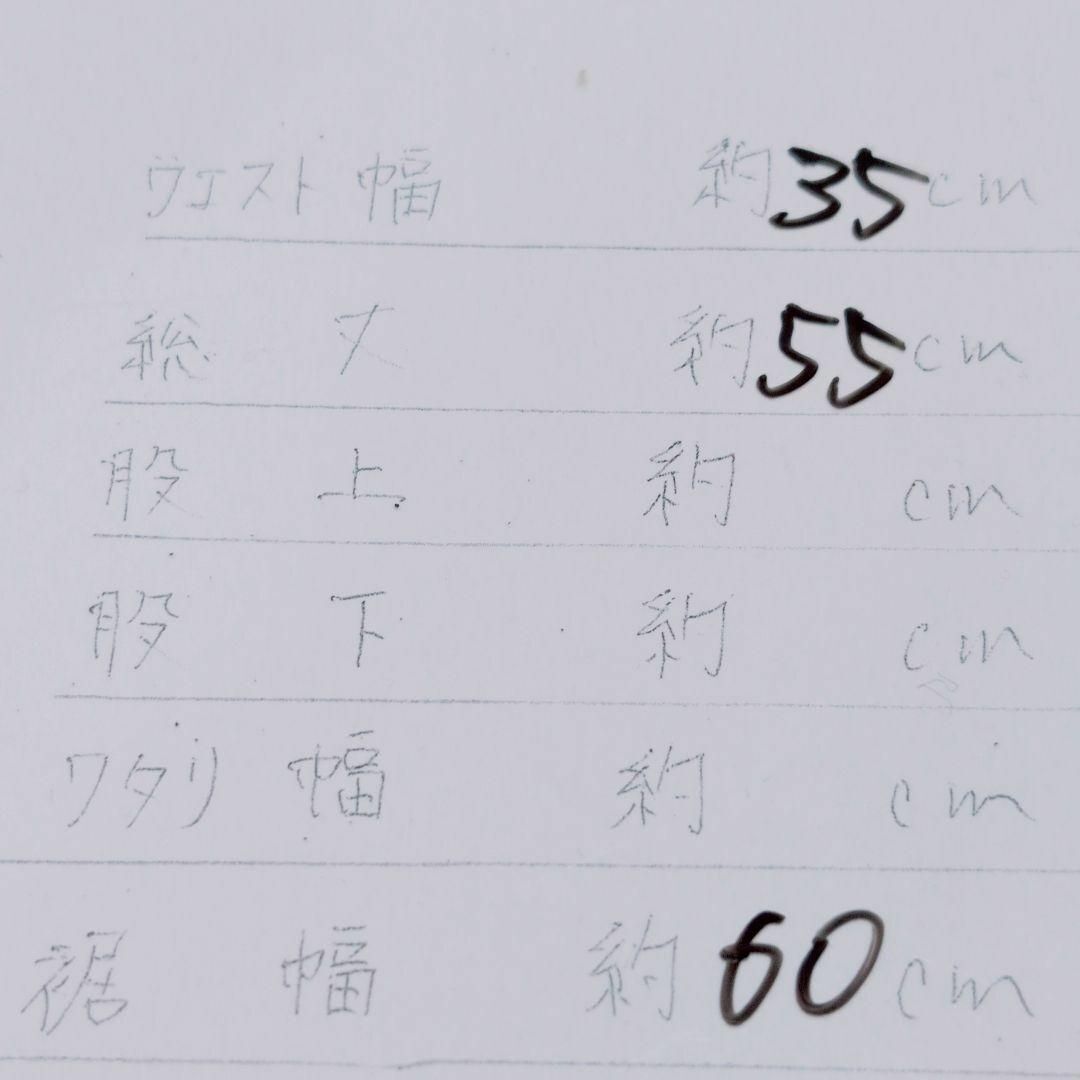 ウエスト幅 約35cm
総丈 約55cm
股上 約 cm
股下 約 cm
ワタリ幅 約 cm
裾幅 約60cm